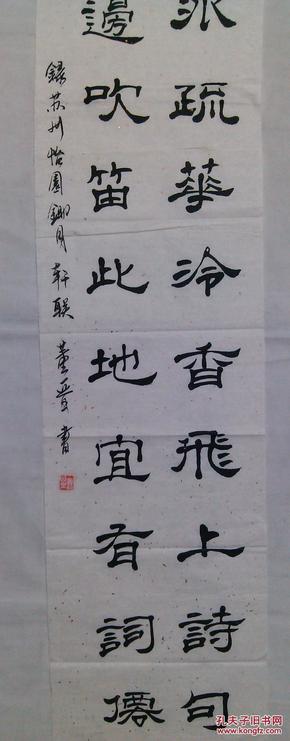 疏華冷香飛上詩句
邊吹笛此地宜有詞僊
録苏州怡園鋤月軒联 董書
孔夫子旧书网
www.kongfz.com